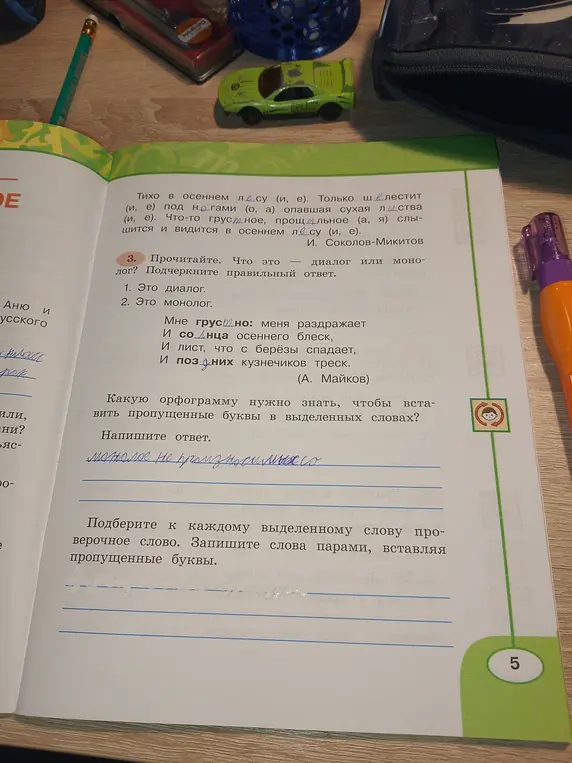 Тихо в осеннем лесу (и, е). Только шелестит
(и, е) под ногами (о, а) опавшая сухая листва
(и, е). Что-то грустное, прощальное (а, я) слы-
шится и видится в осеннем лесу (и, е).
И. Соколов-Микитов
3. Прочитайте. Что это — диалог или моно-
лог? Подчеркните правильный ответ.
1. Это диалог.
2. Это монолог.
Мне грустно: меня раздражает
И солнца осеннего блеск,
И лист, что с берёзы спадает,
И поздних кузнечиков треск.
(А. Майков)
Какую орфограмму нужно знать, чтобы вста-
вить пропущенные буквы в выделенных словах?
Напишите ответ.
не
Подберите к каждому выделенному слову про-
верочное слово. Запишите слова парами, вставляя
пропущенные буквы.
5
ОЕ
Аню и
усского
или,
ани?
ъяс-
ро-
е